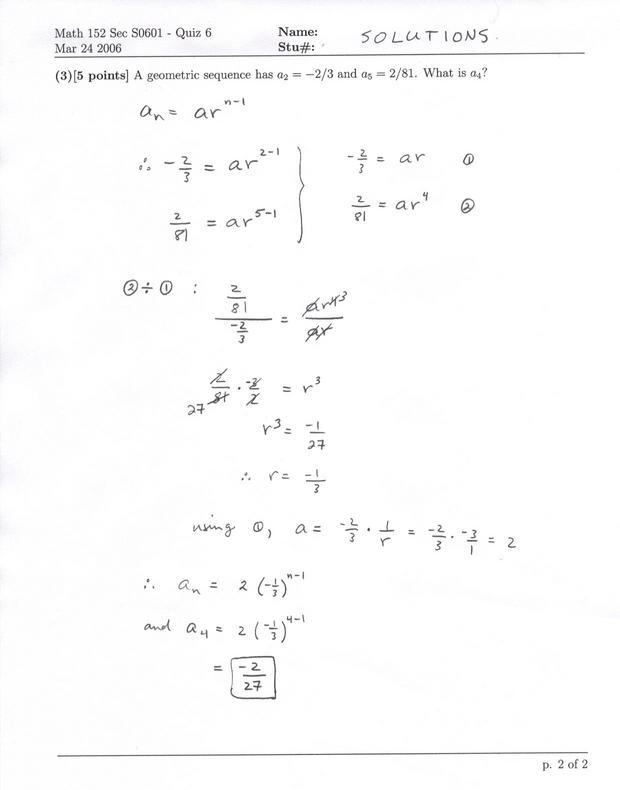 Math 152 Sec S0601 - Quiz 6 Name: SOLUTIONS.
Mar 24 2006 Stu#:
(3)[5 points] A geometric sequence has a₂ = −2/3 and a₅ = 2/81. What is a₄?
aₙ = ar^(n-1)
∴ -2/3 = ar^(2-1) } -2/3 = ar ①
2/81 = ar^(5-1) 2/81 = ar^4 ②
② ÷ ① : (2/81)/(-2/3) = ar^4 3/ar
27 2/81 · -3/2 = r³
r³ = -1/27
∴ r = -1/3
using ①, a = -2/3 · 1/r = -2/3 · -3/1 = 2
∴ aₙ = 2(-1/3)^(n-1)
and a₄ = 2(-1/3)^(4-1)
= -2/27
p. 2 of 2